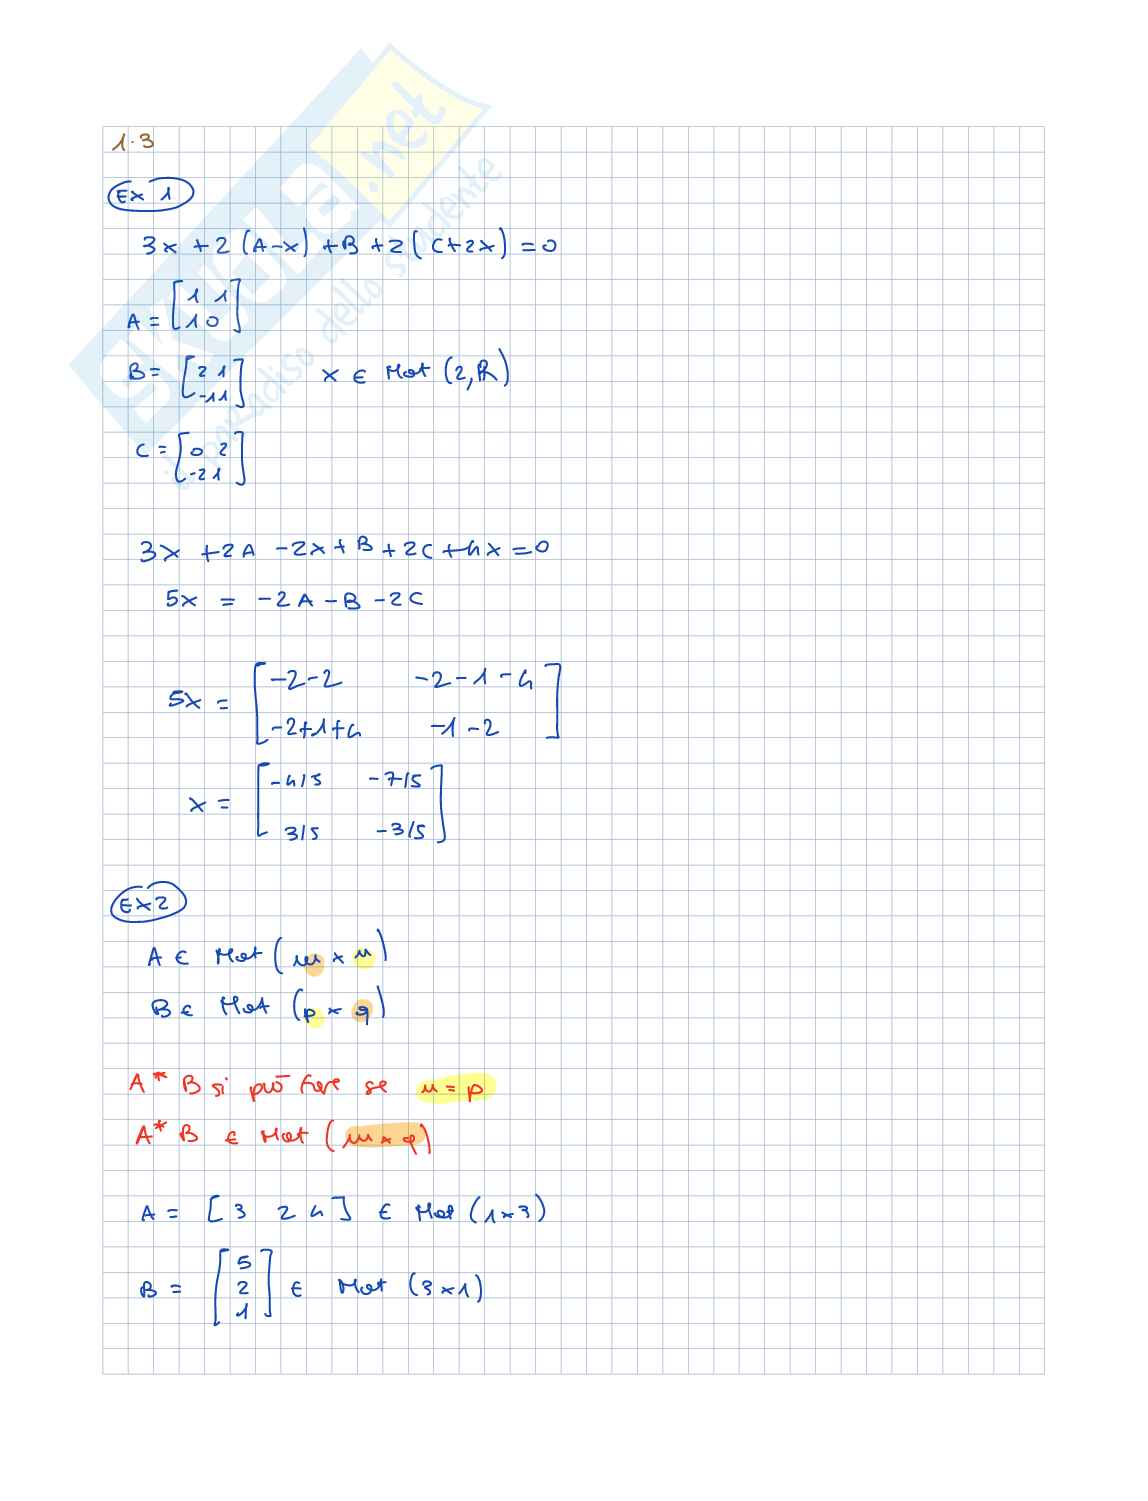 1.3
Ex 1
3x + 2 (A-x) + B + 2 ( C+2x) = 0
A = [ 1 1
1 0 ]
B = [ 2 1
-1 1 ]
x ∈ Mat (2, R)
C = [ 0 2
-2 1 ]
3x + 2A - 2x + B + 2C + 4x = 0
5x = -2A - B - 2C
5x = [ -2-2 -2-1-4
-2+1+4 -1-2 ]
x = [ -4/5 -7/5
3/5 -3/5 ]
Ex2
A ∈ Mat ( m × n )
B ∈ Mat ( p × q )
A * B si può fare se n = p
A * B ∈ Mat ( m × q )
A = [ 3 2 4 ] ∈ Mat (1×3)
B = [ 5
2
1 ] ∈ Mat (3×1)
SKUOLA.net
il paradiso dello studente